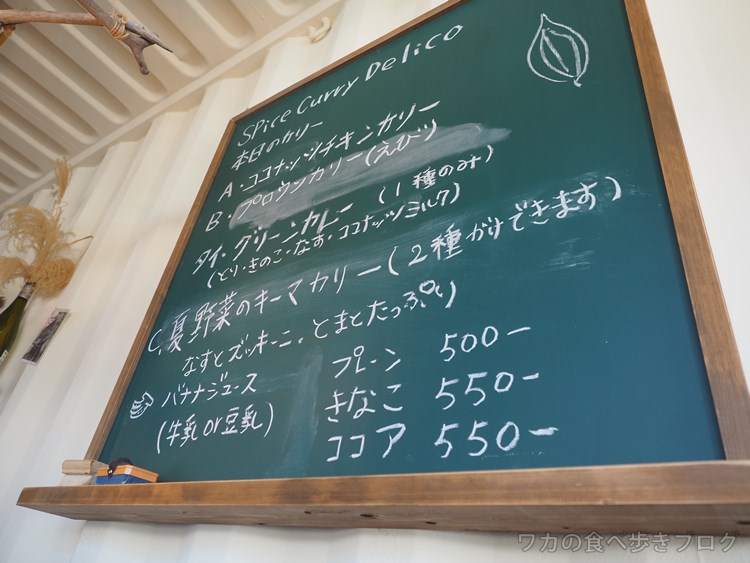 Spice Curry Delico
本日のカリー
A・ココナッツチキンカリー
B・プロウンカリー(えび)
タイ・グリーンカレー (1種のみ)
(とり・きのこ・なす・ココナッツミルク)
C.夏野菜のキーマカリー(2種がけできます)
なすとズッキーニ、とまとたっぷり
バナナジュース プレーン 500-
(牛乳or豆乳) きなこ 550-
ココア 550-
ワカの食べ歩きブログ